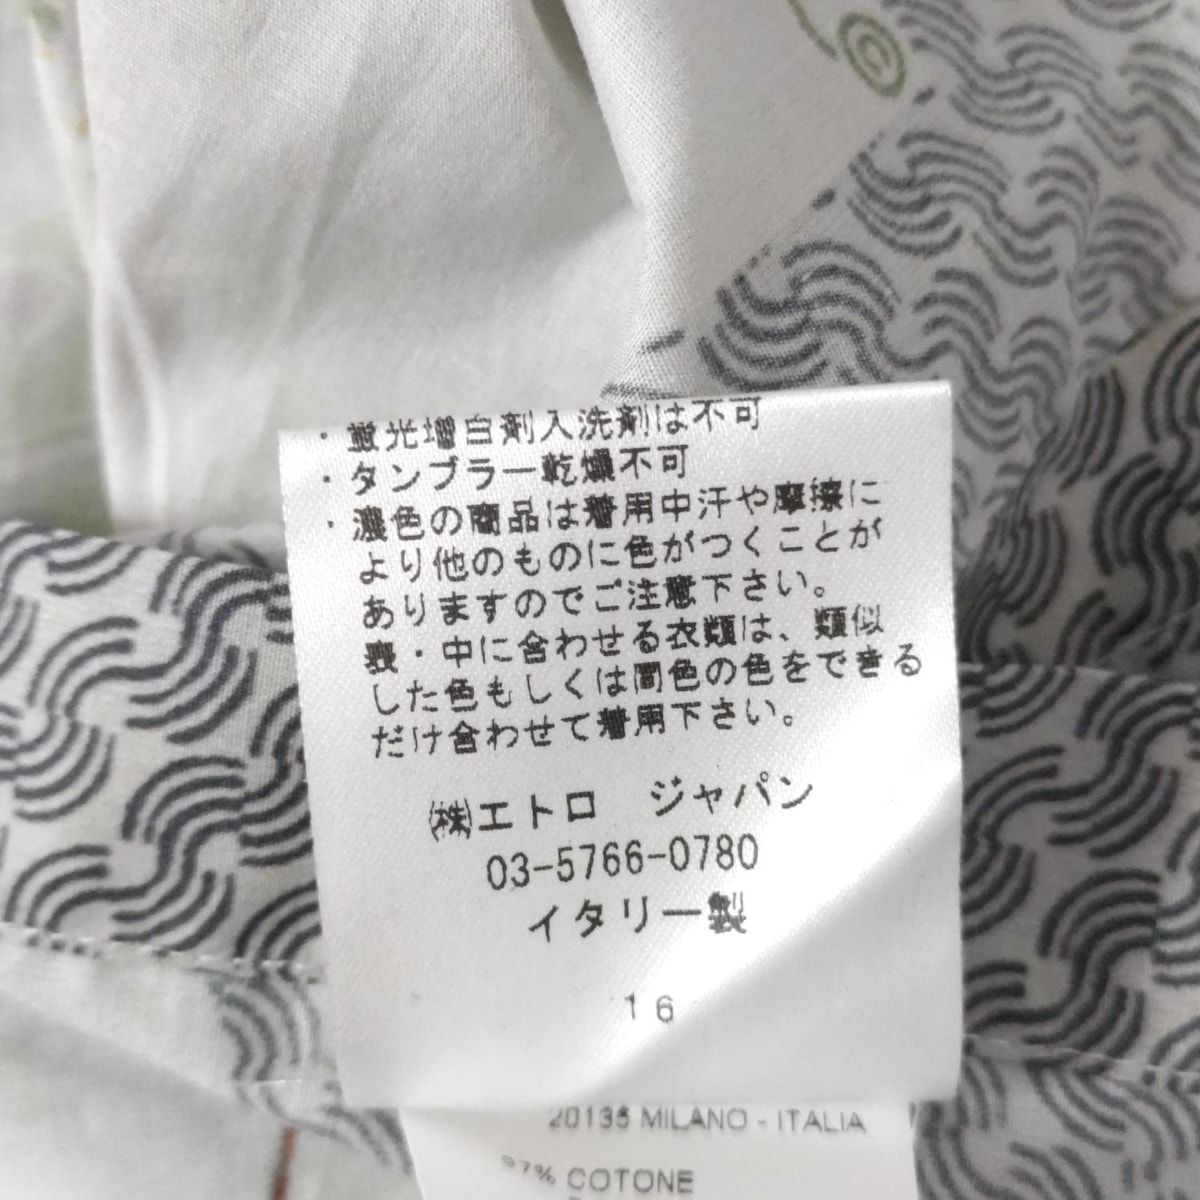 ・蛍光増白剤入洗剤は不可
・タンブラー乾燥不可
・濃色の商品は着用中汗や摩擦に
より他のものに色がつくことが
ありますのでご注意下さい。
表・中に合わせる衣類は、類似
した色もしくは同色の色をできる
だけ合わせて着用下さい。
㈱エトロ ジャパン
03-5766-0780
イタリー製
16
20135 MILANO - ITALIA
97% COTONE